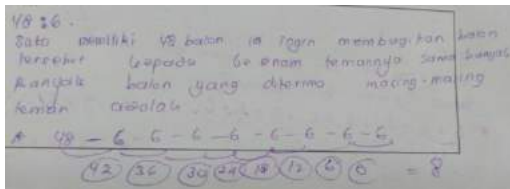 48 : 6.
Sato memiliki 48 balon. ia ingin membagikan balon
tersebut kepada ke enam temannya sama banyak
Banyak balon yang diterima masing-masing
teman adalah
48 - 6 - 6 - 6 - 6 - 6 - 6 - 6 - 6
42 36 30 24 18 12 6 0 = 8